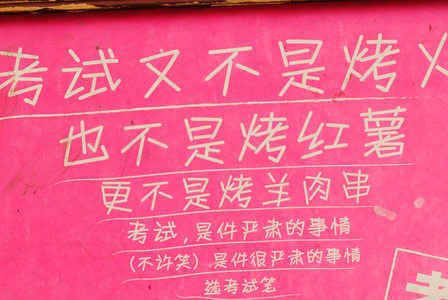 考试又不是烤火
也不是烤红薯
更不是烤羊肉串
考试,是件严肃的事情
(不许笑)是件很严肃的事情
选考试笔